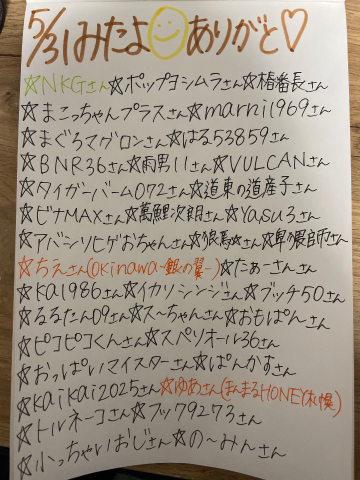 5/31みたよ ありがと♡
☆NKGさん☆ポップヨシムラさん☆椿番長さん
☆まこっちゃんプラスさん☆marni1969さん
☆まぐろマグロンさん☆はる53859さん
☆BNR36さん☆雨男11さん☆VULCANさん
☆タイガーバーム072さん☆道東の道産子さん
☆ビナMAXさん☆萬鯉次朗さん☆Yasu3さん
☆アバシリヒゲおちゃんさん☆狼 さん☆卑猥師さん
☆ちえさん(Okinawa-銀の翼-)☆たぁーさんさん
☆KA1986さん☆イカリシンジさん☆ブッチ50さん
☆るるたん09さん☆ス〜ちゃんさん☆おもぱんさん
☆ピコピコくんさん☆スペリオール36さん
☆おっぱいマイスターさん☆ぱんかすさん
☆kaikai2025さん☆ゆあさん(まんまるHONEY札幌)
☆トルネーコさん☆フック79273さん
☆小っちゃいおじさん☆の〜みんさん